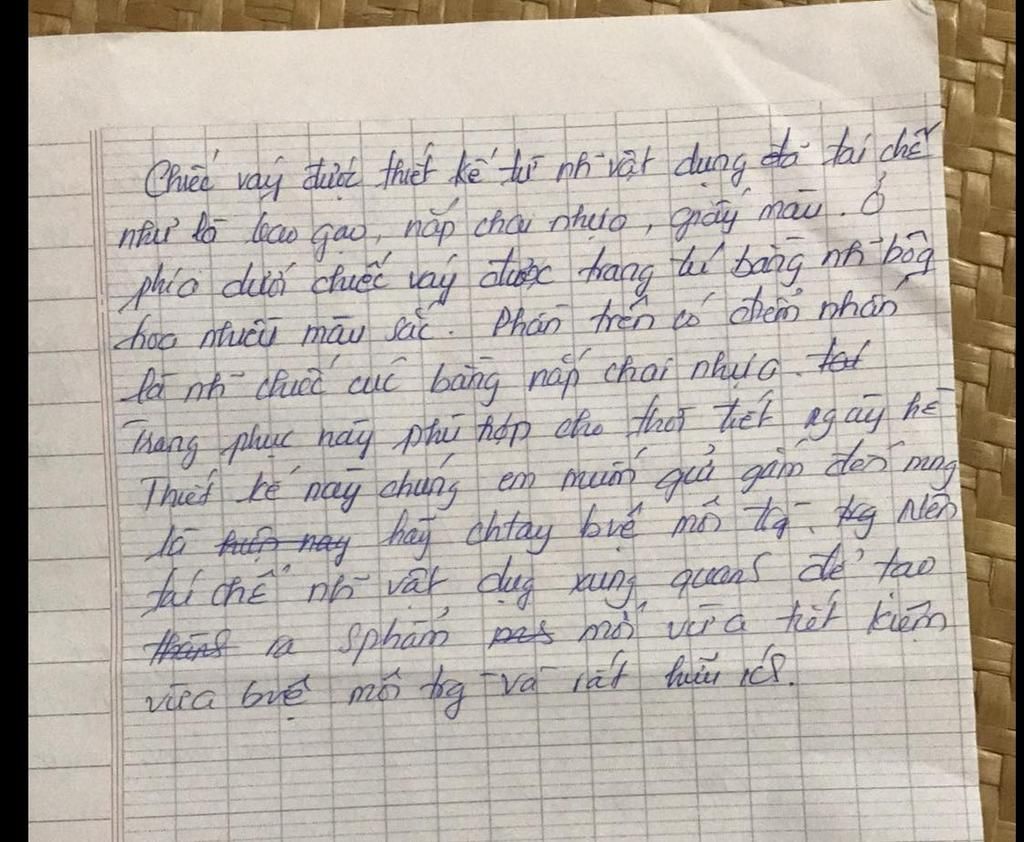 Chiếc váy được thiết kế từ nh~ vật dụng đã tái chế
như là bao gạo, nắp chai nhựa, giấy màu. Ở
phía dưới chiếc váy được trang trí bằng nh~ bôg
hoa nhiều màu sắc. Phần trên có điểm nhấn
là nh~ chiếc cúc bằng nắp chai nhựa.
Trang phục này phù hợp cho thời tiết ngày hè
Thiết kế này chúng em muốn gửi gắm đến mng
là hãy chtay bvệ môi trg. Nên
tái chế nh~ vật dụg xung quanh để tạo
ra sphẩm mới vừa tiết kiệm
vừa bvệ môi trg và rất hữu ích.